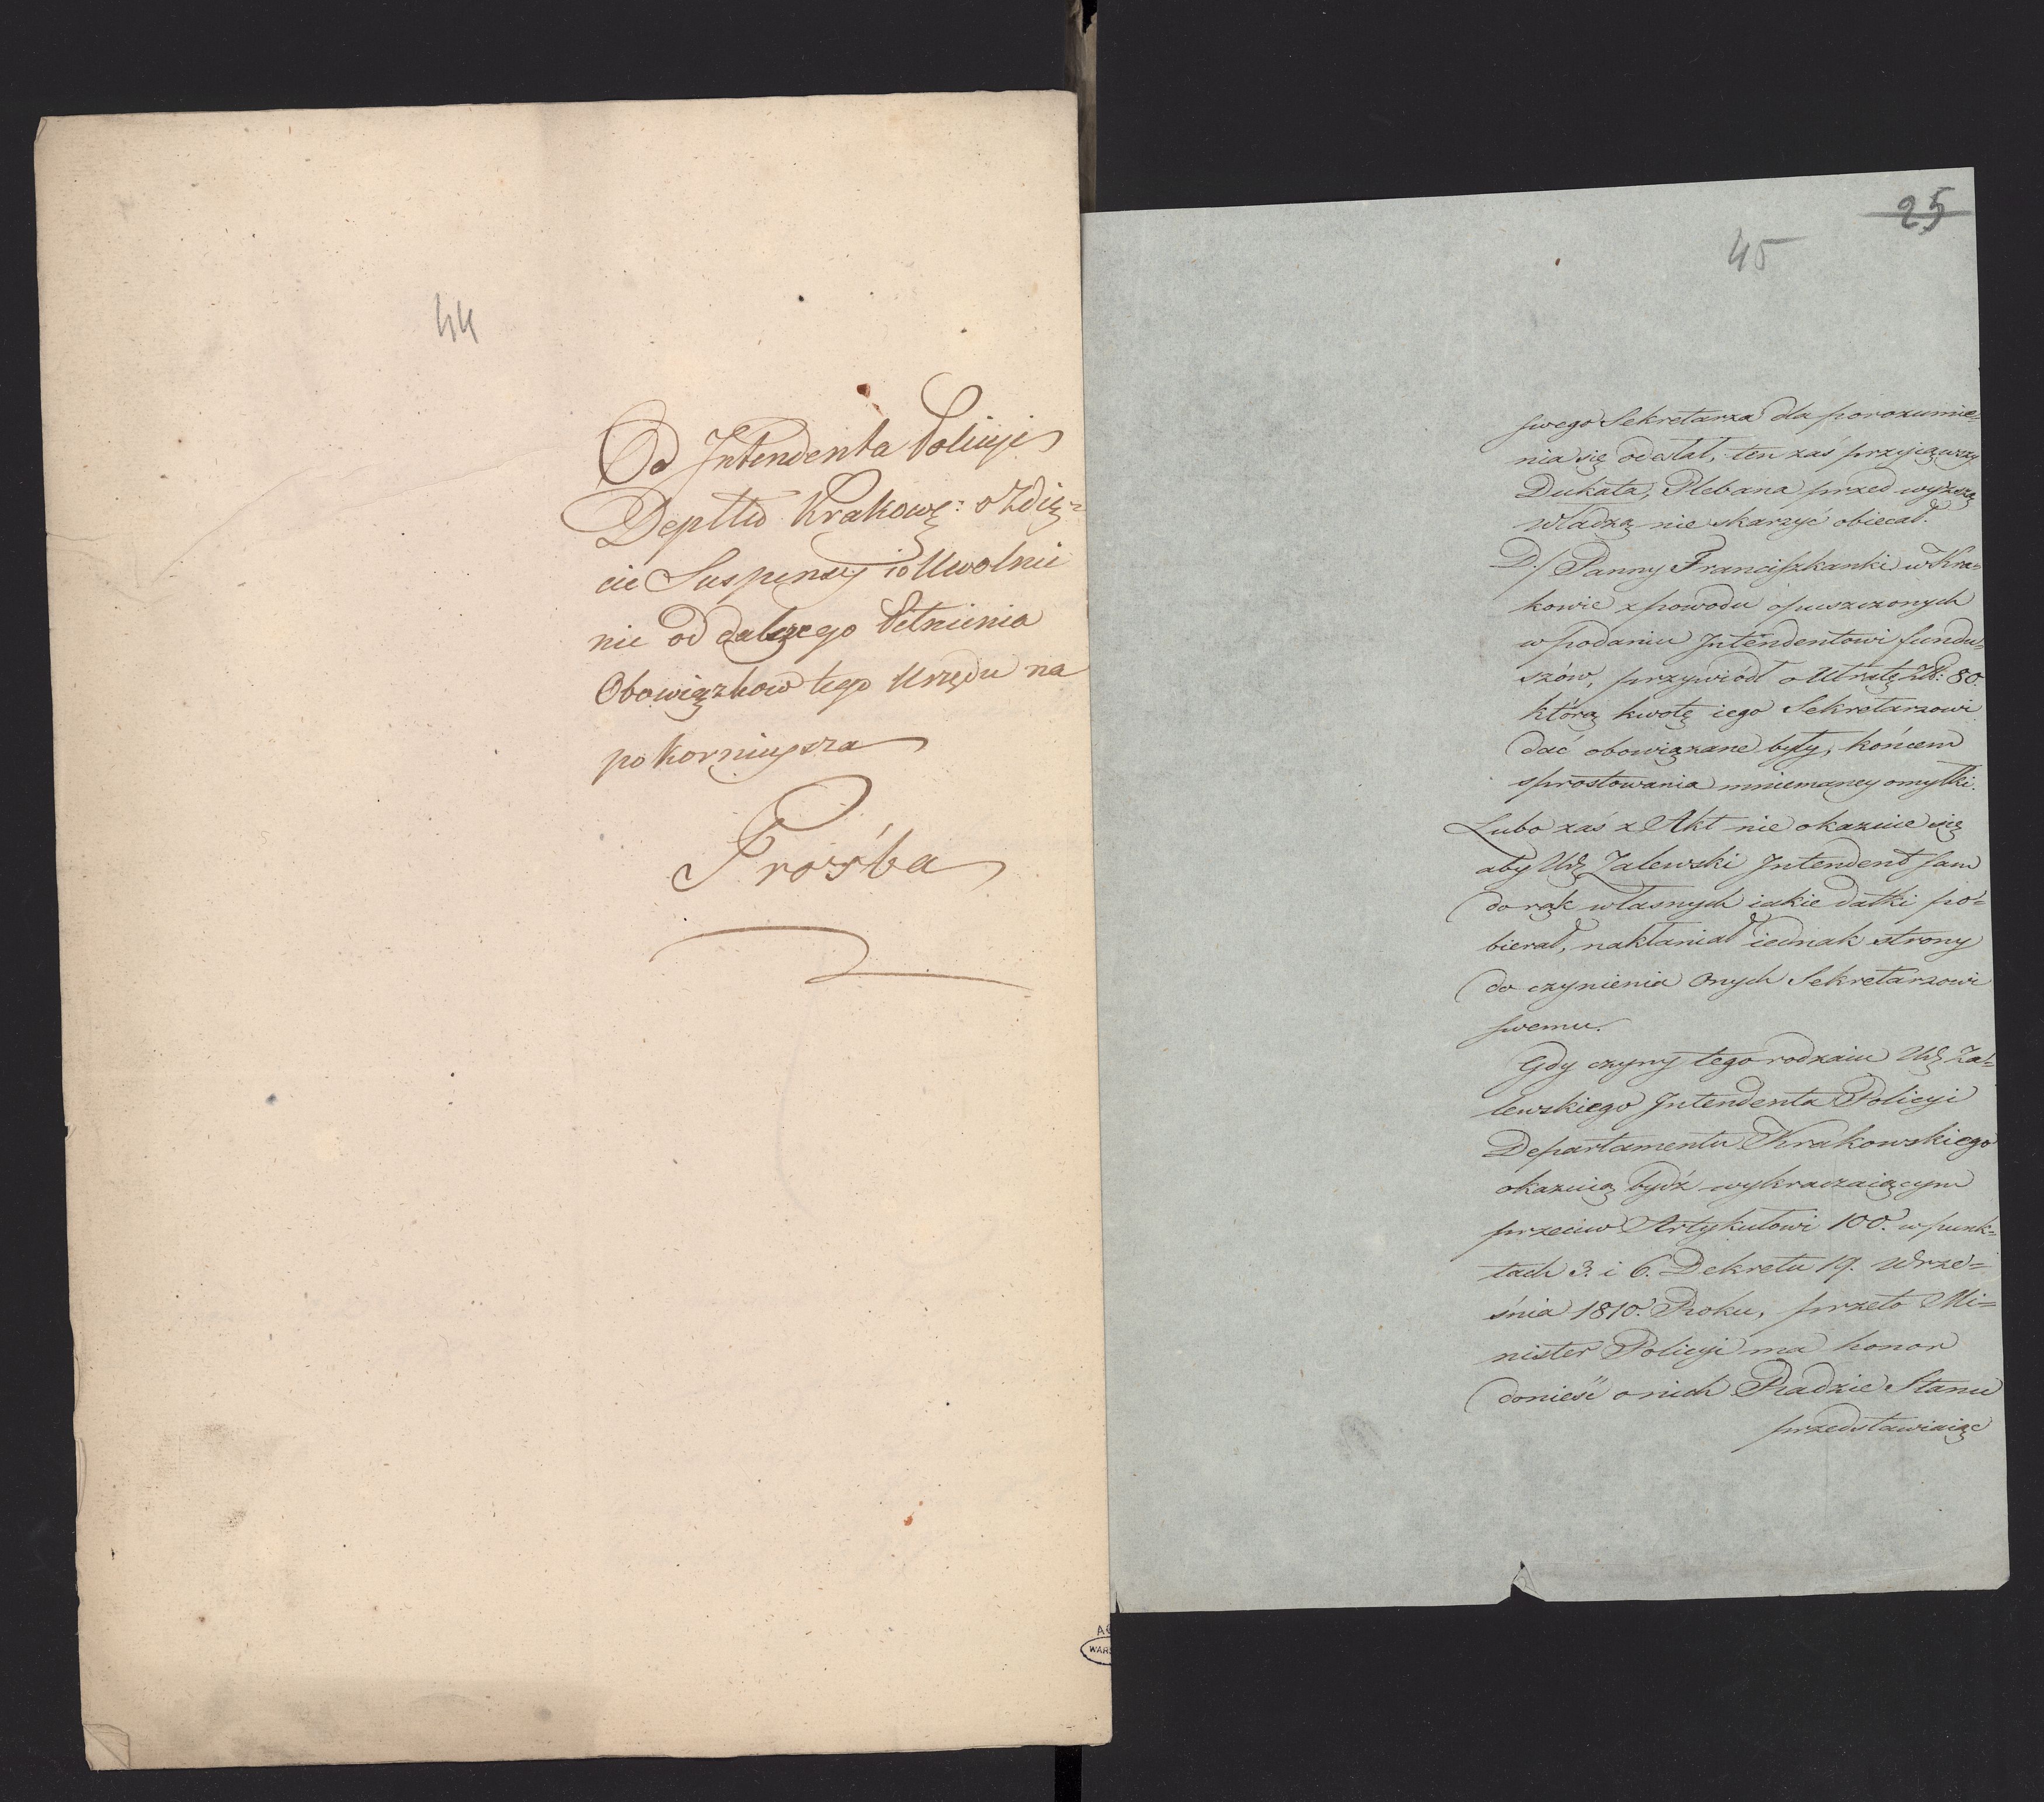 44
Od Intendenta Policyi
Depttu Krakowę: o Zdię=
cie Suspensy i o Uwolnie
nie od dalszego Pełnienia
Obowiązkow tego Urzędu na
pokornieysza
Prośba
WAR
25
45
swego Sekretarza dla porozumie=
nia się odesłał, ten zaś przyiąwszy
Dukata, Plebana przed wyższą
Władzą nie skarzyć obiecał.
D./ Panny Franciszkanki w Kra=
kowie z powodu opuszczonych
w podaniu Intendentowi fundu=
szów, przywiódł o Utratę Zł: 80.
którą kwotę iego Sekretarzowi
dać obowiązane były, końcem
sprostowania mniemaney omyłki.
Lubo zaś z Akt nie okazuie się
aby Ur. Zalewski Intendent sam
do rąk własnych iakie datki po=
bierał, nakłaniał iednak strony
do czynienia Onych Sekretarzowi
swemu.
Gdy czyny tego rodzaiu Ur. Za=
lewskiego Intendenta Policyi
Departamentu Krakowskiego
okazuią bydź wykraczaiącym
przeciw Artykułowi 100. w punk=
tach 3. i 6. Dekretu 19. Wrze=
śnia 1810. Roku, przeto Mi=
nister Policyi ma honor
donieść o nich Radzie Stanu
przedstawiaiąc